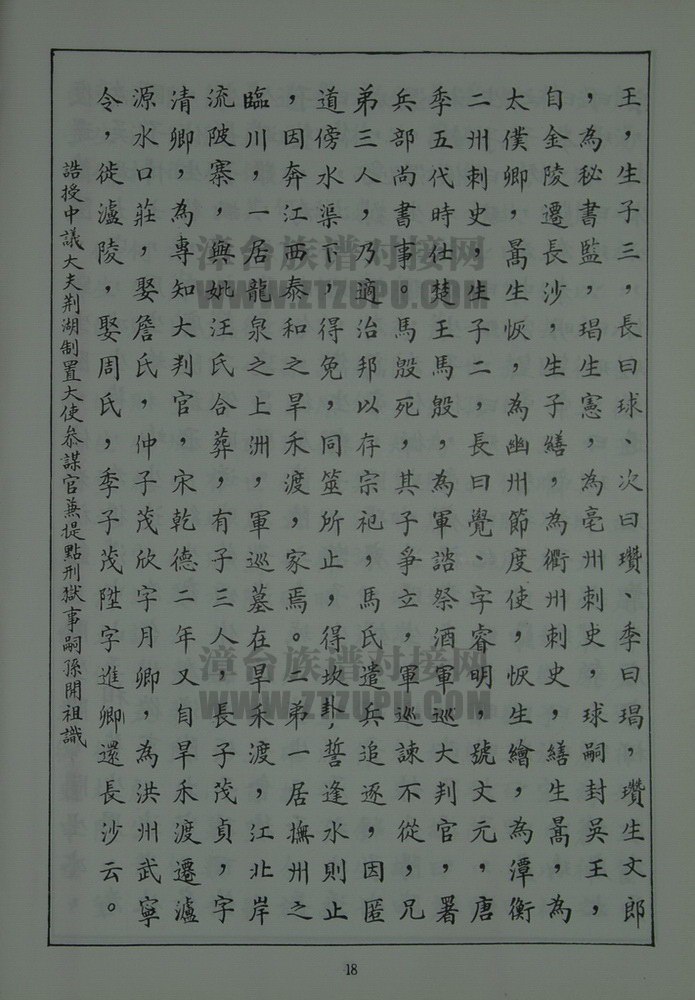 王，生子三，長曰球、次曰瓚、季曰瑒，瓚生文郎
，為秘書監，瑒生憲，為亳州刺史，球嗣封吳王，
自金陵遷長沙，生子繕，為衢州刺史，繕生暠，為
太僕卿，暠生恢，為幽州節度使，恢生繪，為潭衡
二州刺史，生子二，長曰覺、字睿明，號文元，唐
季五代時仕楚王馬殷，為軍諮祭酒軍巡大判官，署
兵部尚書事。馬殷死，其子爭立，軍巡諫不從，兄
弟三人，乃適治邦以存宗祀，馬氏遣兵追逐，因匿
道傍水渠下，得免，同筮所止，得坎卦，誓逢水則止
，因奔江西泰和之旱禾渡，家焉。二弟一居撫州之
臨川，一居龍泉之上洲，軍巡墓在旱禾渡，江北岸
流陂寨，與妣汪氏合葬，有子三人，長子茂貞，字
清卿，為專知大判官，宋乾德二年又自旱禾渡遷瀘
源水口莊，娶詹氏，仲子茂欣字月卿，為洪州武寧
令，徙瀘陵，娶周氏，季子茂陞字進卿還長沙云。
誥授中議大夫荆湖制置大使叅謀官兼提點刑獄事嗣孫開祖識
18
漳台族谱对接网
WWW.ZTZUPU.COM
漳台族谱对接网
WWW.ZTZUPU.COM